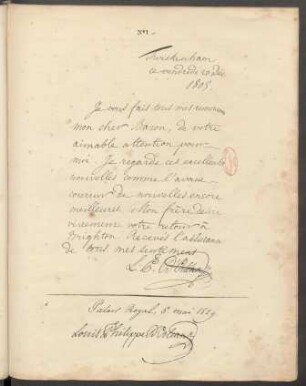 Twickenham
ce vendredi 20 Dec
1805
Je vous fais tous mes remerci
mon cher Baron, de votre
aimable attention pour
moi. Je regarde ces excellentes
nouvelles comme l'avant
coureur de nouvelles encore
meilleures. Mon frère desire
vivement votre retour à
Brighton. Recevez l'assurance
de tous mes sentiments
Palais Royal, 5 mai 1829
Louis Philippe D'Orléans